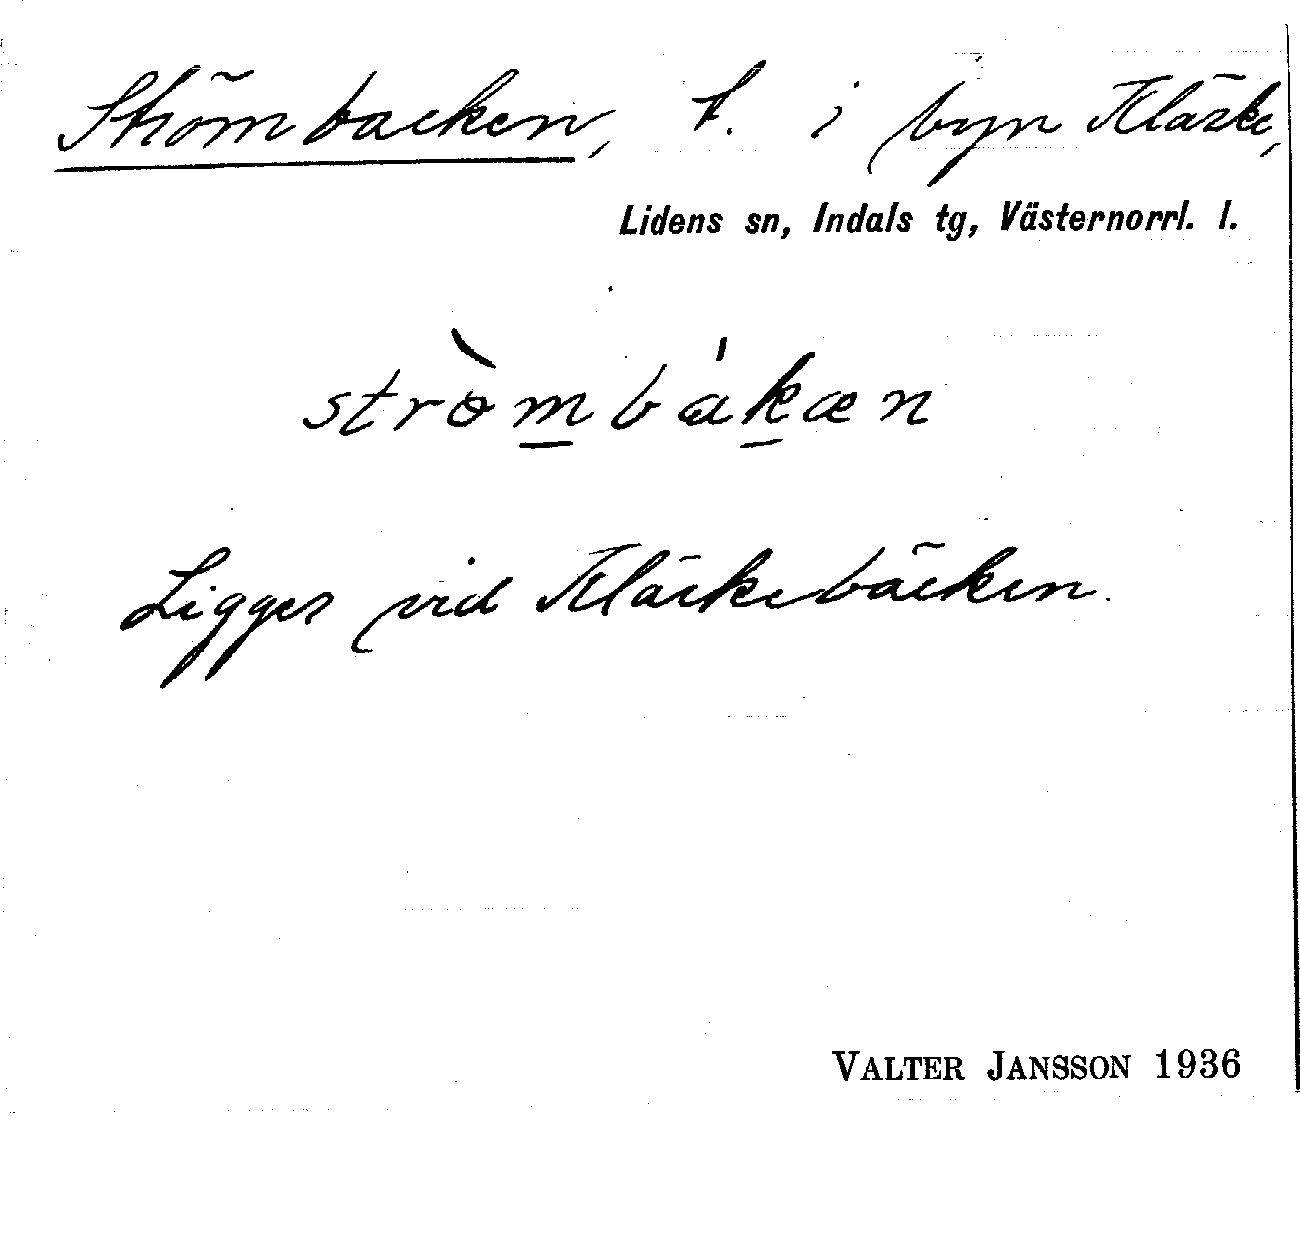 Strömbacken, t. i byn Kläcke,
Lidens sn, Indals tg, Västernorrl. l.
strò̀mbákæn
Ligger vid Kläckebäcken.
VALTER JANSSON 1936